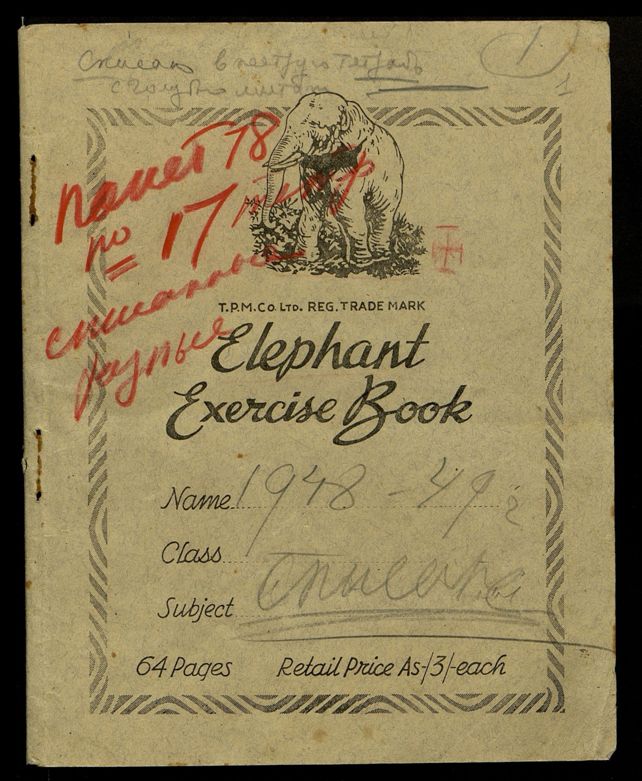 Списано в пеструю тетрадь
1
с голубыми
1
пакет 18
по 17
списанные
разные
T.P.M.Co. LTD. REG. TRADE MARK
Elephant
Exercise Book
Name 1948-49 г
Class
Subject Списано
64 Pages Retail Price As-/3/-each